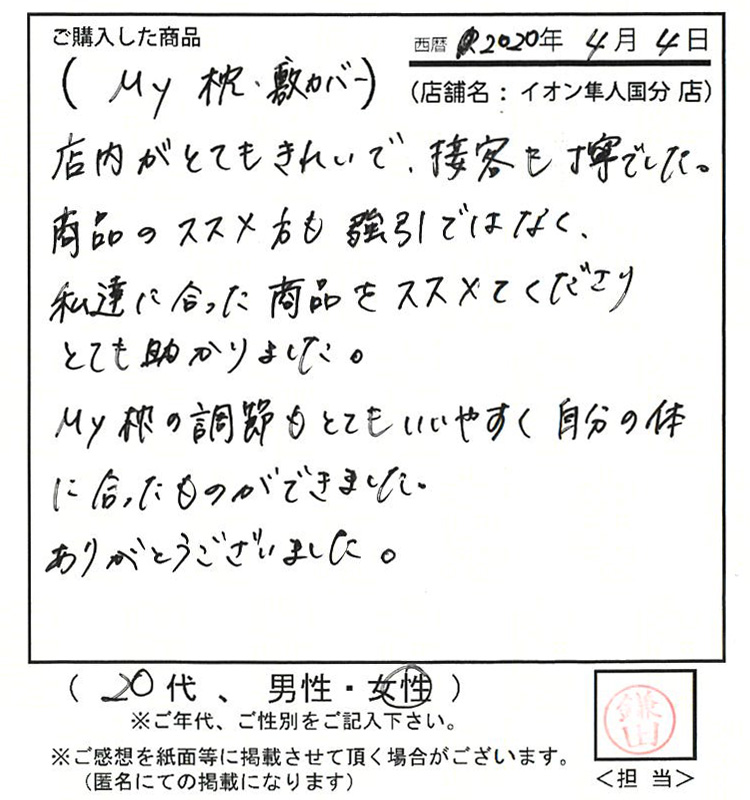 ご購入した商品
西暦 2020年 4月 4日
( My 枕・敷カバー)
(店舗名: イオン隼人国分 店)
店内がとてもきれいで、接客も丁寧でした。
商品のススメ方も強引ではなく、
私達に合った商品をススメてくださり
とても助かりました。
My枕の調節もとてもいいやすく自分の体
に合ったものができました。
ありがとうございました。
( 20 代 、 男性・女性 )
※ご年代、ご性別をご記入下さい。
※ご感想を紙面等に掲載させて頂く場合がございます。
(匿名にての掲載になります)
鎌山
<担 当>